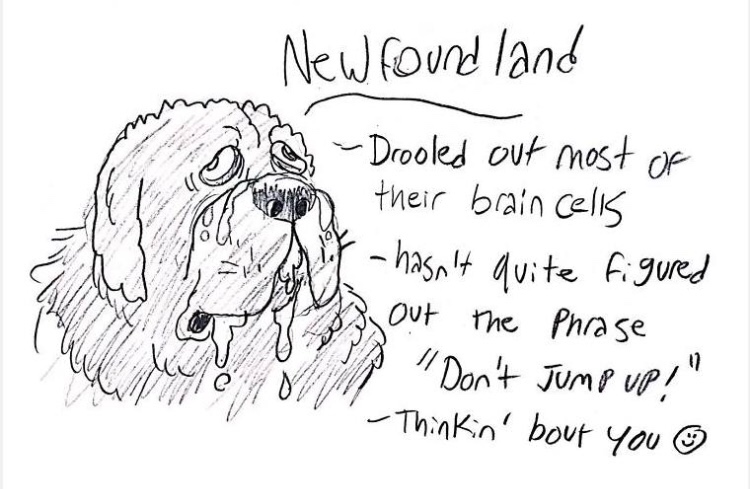 Newfoundland
- Drooled out most of
their brain cells
- hasn't quite figured
out the phrase
"Don't Jump up!"
- Thinkin' bout you ☺